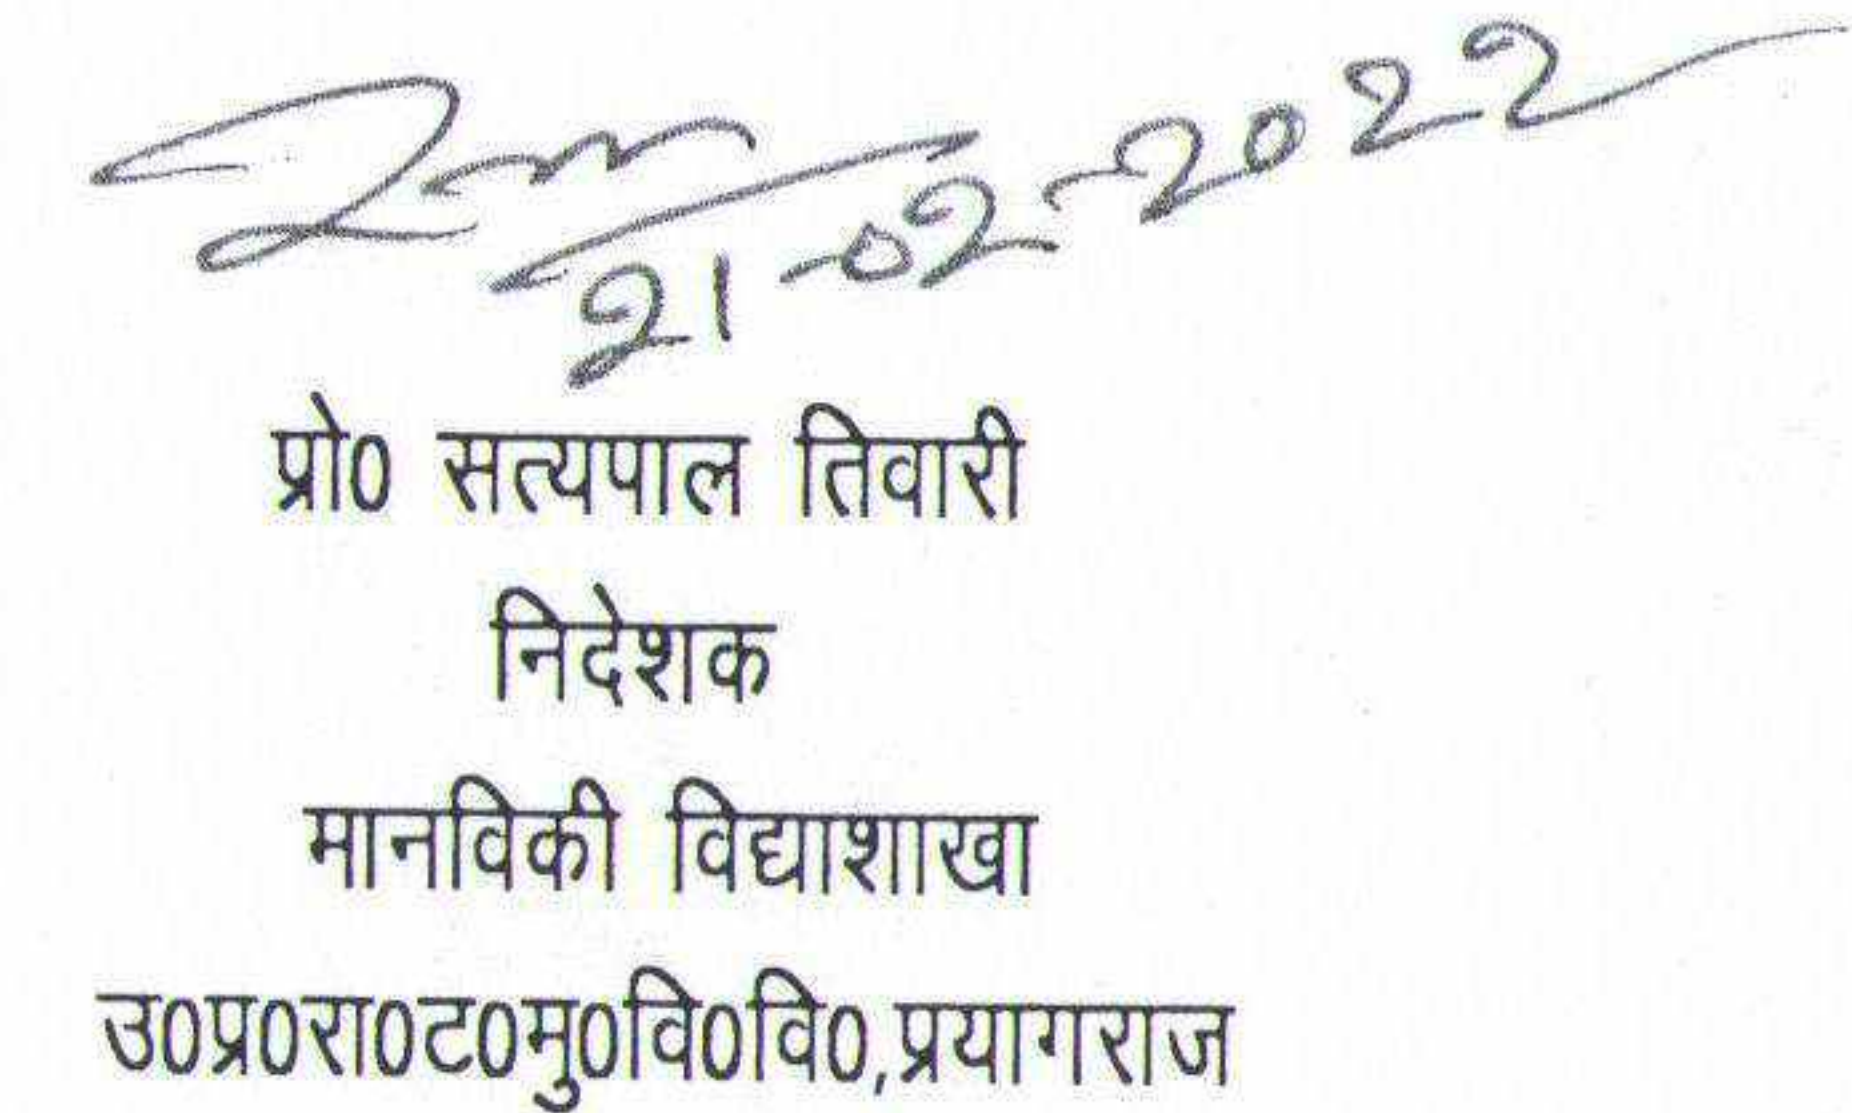 21-02-2022
प्रो0 सत्यपाल तिवारी
निदेशक
मानविकी विद्याशाखा
उ0प्र0रा0ट0मु0वि0वि0,प्रयागराज